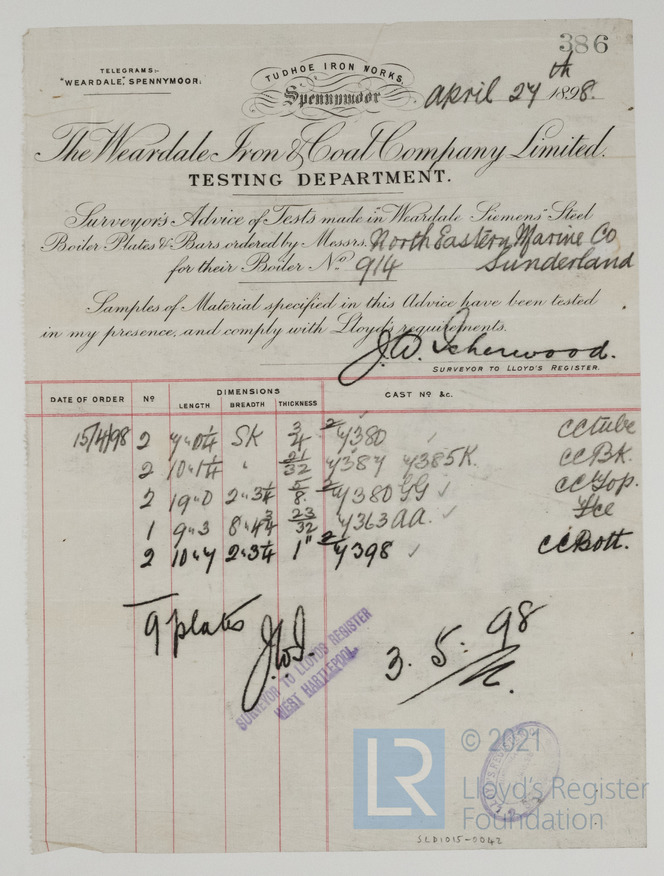 386
TELEGRAMS:-
"WEARDALE," SPENNYMOOR.
TUDHOE IRON WORKS,
Spennymoor
April 27th 1898.
The Weardale Iron & Coal Company Limited.
TESTING DEPARTMENT.
Surveyor's Advice of Tests made in Weardale Siemens' Steel
Boiler Plates & Bars ordered by Messrs. North Eastern Marine Co
for their Boiler No. 914 Sunderland
Samples of Material specified in this Advice have been tested
in my presence, and comply with Lloyd's requirements.
J. W. Isherwood.
SURVEYOR TO LLOYD'S REGISTER.
DATE OF ORDER No DIMENSIONS CAST Nos &c.
LENGTH BREADTH THICKNESS
15/4/98 2 7"0¼ SK 3/4 2/7380 CC tube
2 10"1¼ " 21/32 7387 7385K. CC BK.
2 19"0 2"3¼ 5/8 2/7380 GG CC Top.
1 9"3 8"4¾ 23/32 7363 AA. Fce
2 10"7 2"3¼ 1" 2/7398 CC Bott.
9 plates
J.W.I.
SURVEYOR TO LLOYDS REGISTER
WEST HARTLEPOOL.
3. 5: 98
LR
© 2021
Lloyd's Register
Foundation
SLD1015-0042